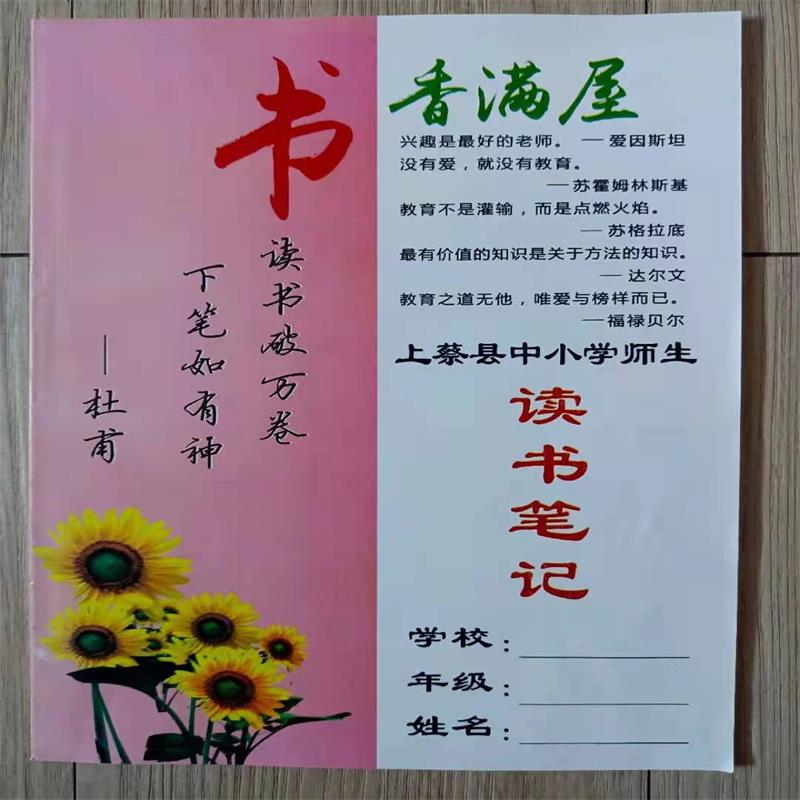 书香满屋
读书破万卷
下笔如有神
——杜甫
兴趣是最好的老师。 ——爱因斯坦
没有爱，就没有教育。
——苏霍姆林斯基
教育不是灌输，而是点燃火焰。
——苏格拉底
最有价值的知识是关于方法的知识。
——达尔文
教育之道无他，唯爱与榜样而已。
——福禄贝尔
上蔡县中小学师生
读书笔记
学校：
年级：
姓名：